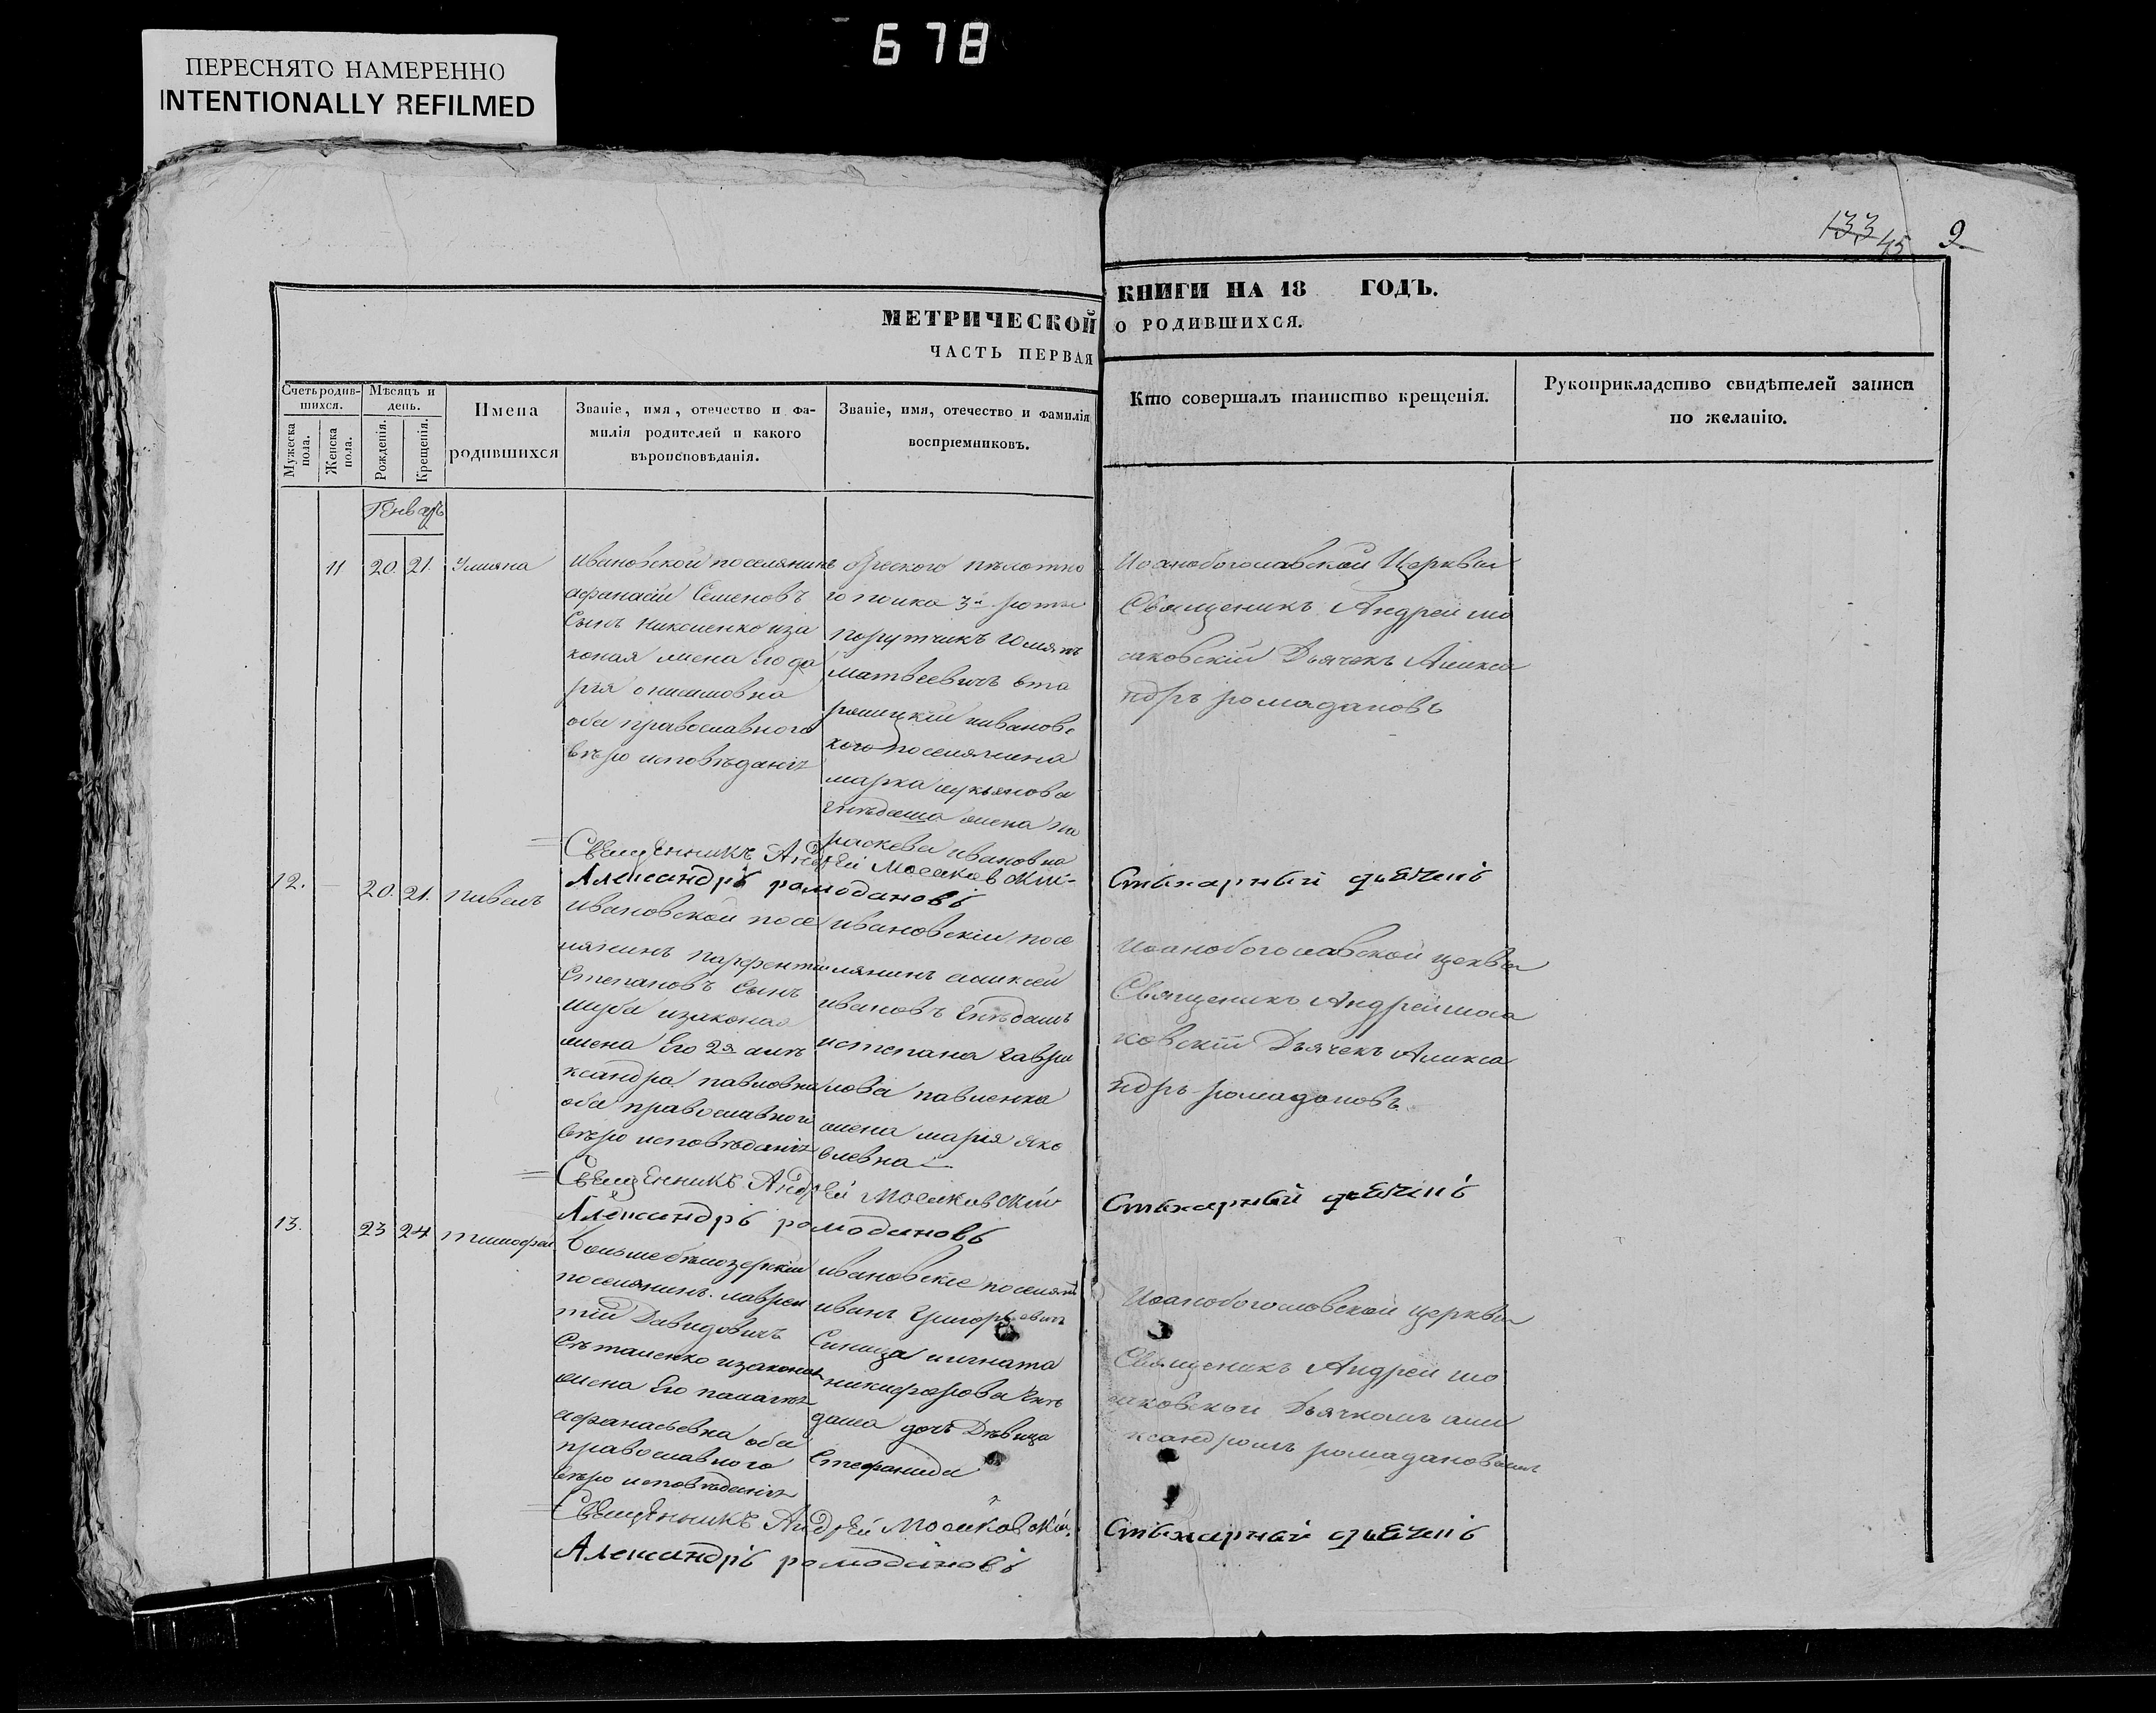 678
ПЕРЕСНЯТО НАМЕРЕННО
INTENTIONALLY REFILMED
133 45 9
МЕТРИЧЕСКОЙ КНИГИ НА 18 ГОДЪ.
ЧАСТЬ ПЕРВАЯ О РОДИВШИХСЯ.
Счетъ родив-
шихся.
Мужеска пола.
Женска пола.
Мѣсяцъ и
день.
Рожденія.
Крещенія.
Имена
родившихся
Званіе, имя, отечество и фа-
милія родителей и какого
вѣроисповѣданія.
Званіе, имя, отечество и фамилія
воспріемниковъ.
Кто совершалъ таинство крещенія.
Рукоприкладство свидѣтелей записи
по желанію.
Генварь
11 20. 21. Улияна
Ивановской поселянинъ
афанасій Семеновъ
Сынъ Николенко иза
коная жена Его да
рія
оба православного
вѣро исповѣданія
пѣхотно
го полка 3й роты
порутчикъ
матвеевичъ
иивановс
кого поселянина
марка лукьянова
жена па
раскева ивановна
Иоанобогославской Церквы
Священикъ Андрей мо
саковскій Дьячекъ Алекса
ндръ ромадановъ
Священникъ Андрей Мосаковскій
Александръ ромодановъ
Стихарный дьячекъ
12. 20. 21. павелъ
Ивановской посе
лянинъ парфентій
Степановъ Сынъ
шуба изаконая
жена Его 2я алѣ
ксандра павловна
оба православного
вѣро исповѣданія
ивановскіи посе
лянинъ аликсей
ивановъ
истепана гаври
лова павленка
жена марія яко
влевна
Иоанобогославской церквы
Священикъ Андрей моса
ковскій Дьячекъ Алекса
ндръ ромадановъ
Священникъ Андрей Мосаковскій
Александръ ромодановъ
Стихарный дьячекъ
13. 23 24 тимофей
большебѣлозерскій
поселянинъ лаврен
тій Давидовичъ
изаконая
жена Его
афанасьевна оба
православного
вѣро исповѣданія
ивановскіе
иванъ Григорьевичъ
Синица иигната
никифорова
дочъ Дѣвица
Стефанида
Иоанобогословской церквы
Священикъ Андрей мо
саковской Дьячкомъ али
ксандромъ ромадановымъ
Священникъ Андрей Мосаковскій
Александръ ромодановъ
Стихарный дьячекъ